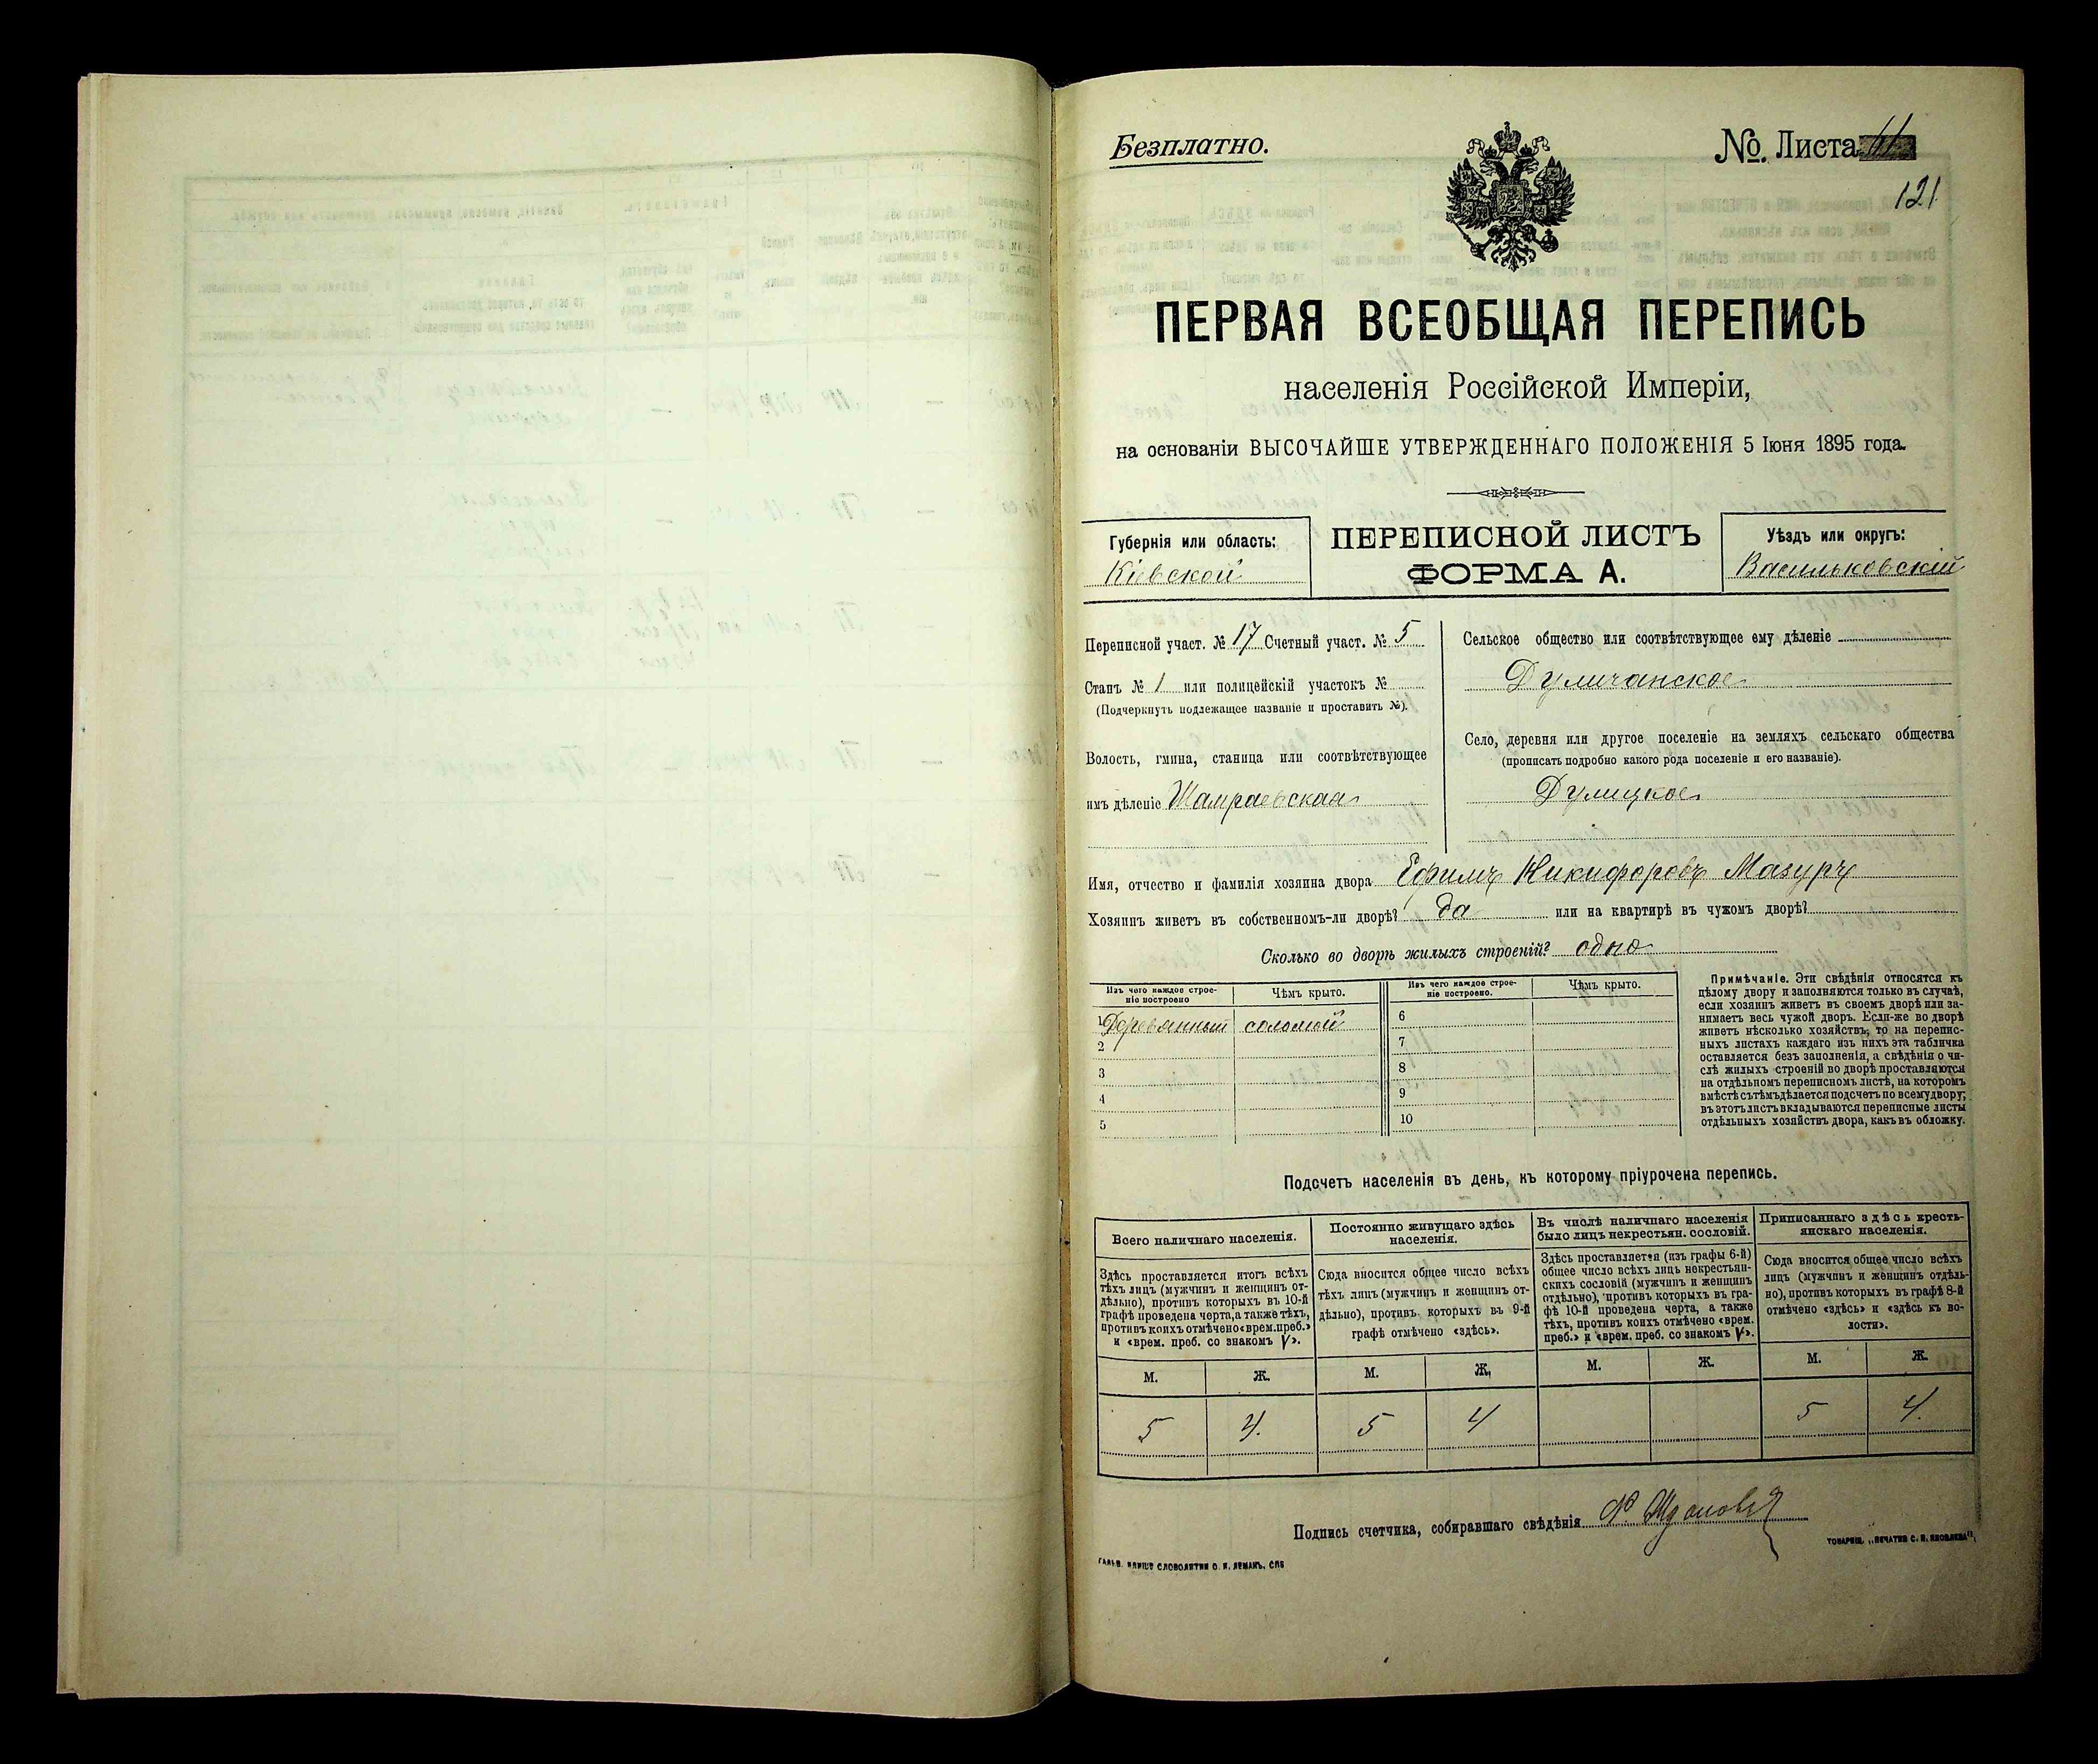 Безплатно.
№. Листа 11
121
ПЕРВАЯ ВСЕОБЩАЯ ПЕРЕПИСЬ
населенія Россійской Имперіи,
на основаніи ВЫСОЧАЙШЕ УТВЕРЖДЕННАГО ПОЛОЖЕНІЯ 5 Іюня 1895 года.
Губернія или область:
Кіевской
ПЕРЕПИСНОЙ ЛИСТЪ
ФОРМА А.
Уѣздъ или округъ:
Васильковскій
Переписной участ. № 17 Счетный участ. № 5
Станъ № 1 или полицейскій участокъ №
(Подчеркнуть подлежащее названіе и проставить №).
Волость, гмина, станица или соотвѣтствующее
имъ дѣленіе Шамраевская
Сельское общество или соотвѣтствующее ему дѣленіе
Дуличанское
Село, деревня или другое поселеніе на земляхъ сельскаго общества
(прописать подробно какого рода поселеніе и его названіе).
Дулицкое
Имя, отчество и фамилія хозяина двора Ефимъ Никифоровъ Мазуръ
Хозяинъ живетъ въ собственномъ-ли дворѣ? да или на квартирѣ въ чужомъ дворѣ?
Сколько во дворѣ жилыхъ строеній? одно
Изъ чего каждое строе-
ніе построено
Чѣмъ крыто.
1 Деревянный соломой
2
3
4
5
Изъ чего каждое строе-
ніе построено.
Чѣмъ крыто.
6
7
8
9
10
Примѣчаніе. Эти свѣдѣнія относятся къ
цѣлому двору и заполняются только въ случаѣ,
если хозяинъ живетъ въ своемъ дворѣ или за-
нимаетъ весь чужой дворъ. Если-же во дворѣ
живетъ нѣсколько хозяйствъ, то на перепис-
ныхъ листахъ каждаго изъ нихъ эта табличка
оставляется безъ заполненія, а свѣдѣнія о чи-
слѣ жилыхъ строеній во дворѣ проставляются
на отдѣльномъ переписномъ листѣ, на которомъ
вмѣстѣ съ тѣмъ дѣлается подсчетъ по всему двору;
въ этотъ листъ вкладываются переписные листы
отдѣльныхъ хозяйствъ двора, какъ въ обложку.
Подсчетъ населенія въ день, къ которому пріурочена перепись.
Всего наличнаго населенія.
Здѣсь проставляется итогъ всѣхъ
тѣхъ лицъ (мужчинъ и женщинъ от-
дѣльно), противъ которыхъ въ 10-й
графѣ проведена черта, а также тѣхъ,
противъ коихъ отмѣчено «врем. преб.»
и «врем. преб. со знакомъ V».
М. Ж.
5 4.
Постоянно живущаго здѣсь
населенія.
Сюда вносится общее число всѣхъ
тѣхъ лицъ (мужчинъ и женщинъ от-
дѣльно), противъ которыхъ въ 9-й
графѣ отмѣчено «здѣсь».
М. Ж.
5 4
Въ числѣ наличнаго населенія
было лицъ некрестьян. сословій.
Здѣсь проставляется (изъ графы 6-й)
общее число всѣхъ лицъ некрестьян-
скихъ сословій (мужчинъ и женщинъ
отдѣльно), противъ которыхъ въ гра-
фѣ 10-й проведена черта, а также
тѣхъ, противъ коихъ отмѣчено «врем.
преб.» и «врем. преб. со знакомъ V».
М. Ж.
Приписаннаго здѣсь кресть-
янскаго населенія.
Сюда вносится общее число всѣхъ
лицъ (мужчинъ и женщинъ отдѣль-
но), противъ которыхъ въ графѣ 8-й
отмѣчено «здѣсь» и «здѣсь къ во-
лости».
М. Ж.
5 4.
Подпись счетчика, собиравшаго свѣдѣнія
ГАЛЬВ. КЛИШЕ СЛОВОЛИТНИ О. И. ЛЕМАНЪ, СПБ
ТОВАРИЩ. „ПЕЧАТНЯ С. П. ЯКОВЛЕВА“.